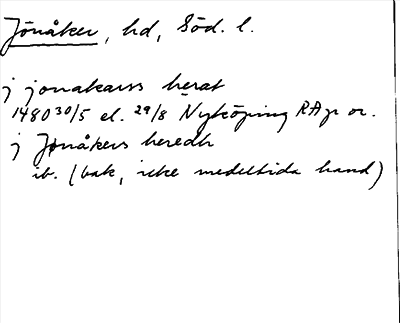 Jönåker, hd, Söd. l.
j jonakærs herat
1480 30/5 el. 29/8 Nyköping RAp or.
j Jönåkers heredh
ib. (bak, icke medeltida hand)